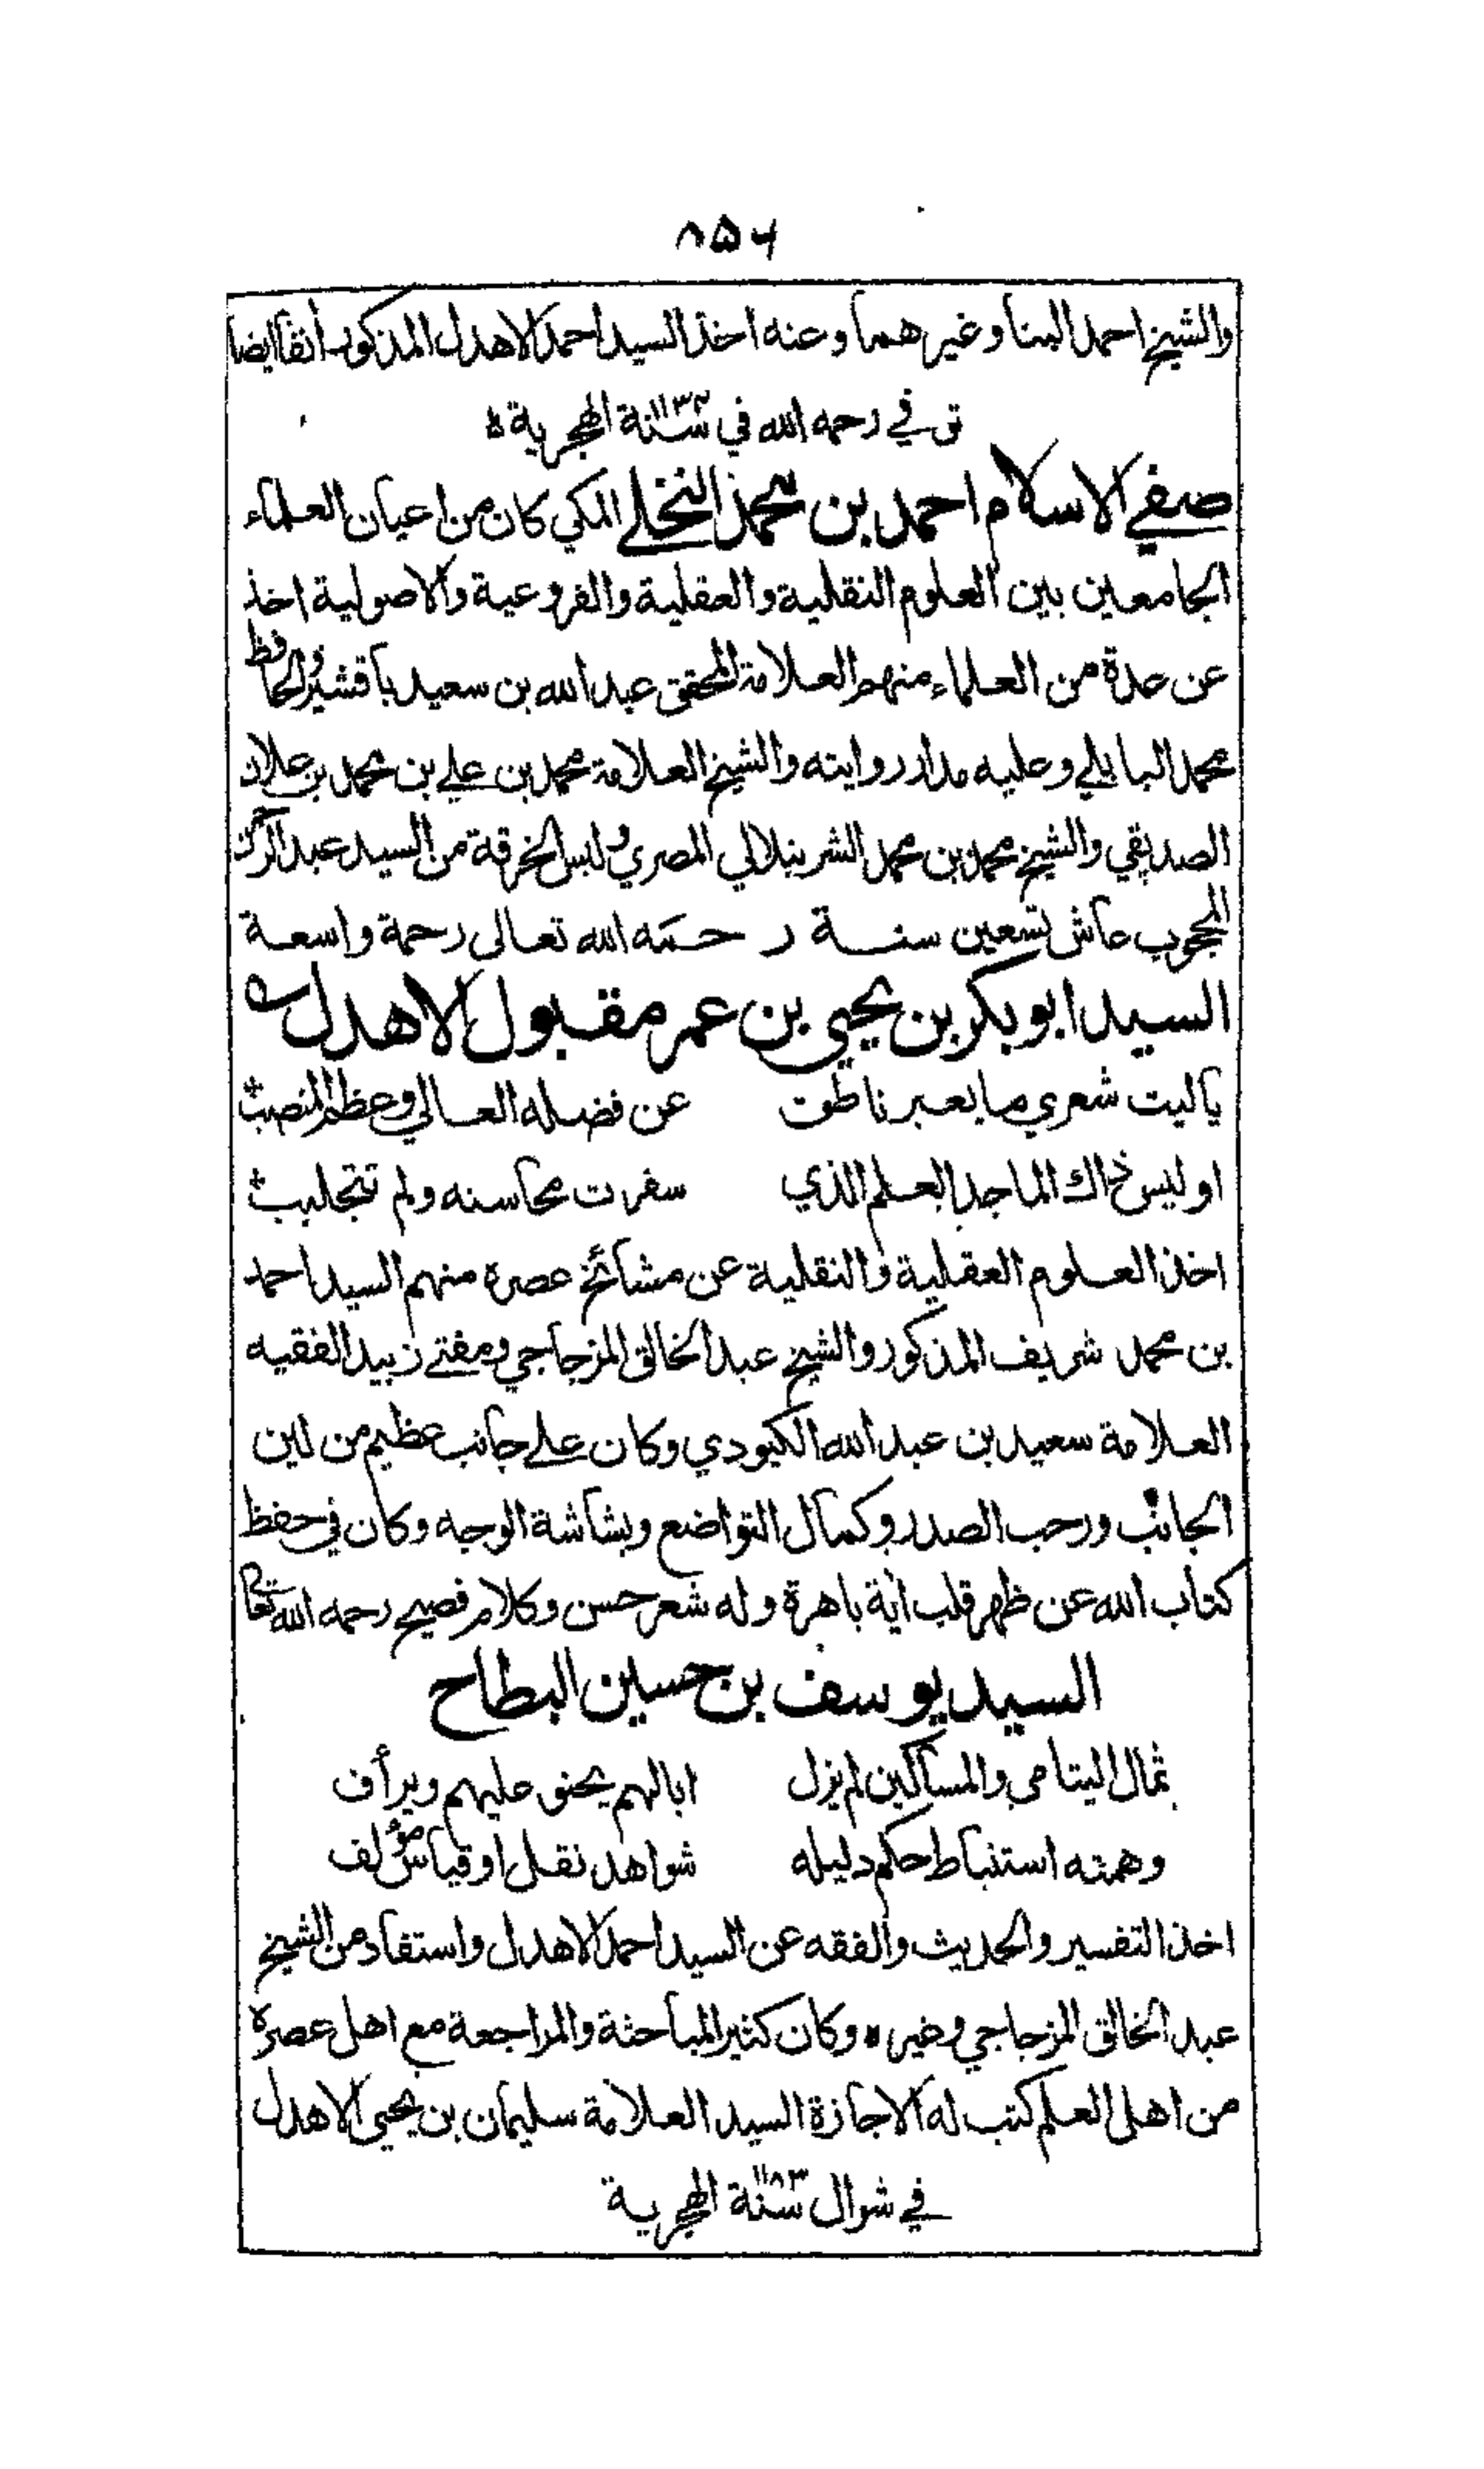 ٨٥٦
والشيخ احمد البنا وغيرهما وعنه اخذ السيد احمد الاهدل المذكور انفا ايضا
توفي رحمه الله في سنة ١١٣٢ الهجرية ه
صفي الاسلام احمد بن محمد النخلي المكي كان من اعيان العلماء
الجامعين بين العلوم النقلية والعقلية والفروعية والاصولية اخذ
عن عدة من العلماء منهم العلامة المحقق عبد الله بن سعيد باقشير والحافظ
محمد البابلي وعليه مدار روايته والشيخ العلامة محمد بن علي بن محمد بن علان
الصديقي والشيخ محمد بن محمد الشرنبلالي المصري ولبس الخرقة من السيد عبد الرحمن
المحجوب عاش تسعين سنة رحمه الله تعالى رحمة واسعة
السيد ابو بكر بن يحيى بن عمر مقبول الاهدل
ياليت شعري ما يعبر ناطق عن فضله العالي وعظم المنصب
او ليس ذاك الماجد العلم الذي سفرت محاسنه ولم تتجلبب
اخذ العلوم العقلية والنقلية عن مشائخ عصره منهم السيد احمد
بن محمد شريف المذكور والشيخ عبد الخالق المزجاجي ومفتي زبيد الفقيه
العلامة سعيد بن عبد الله الكبودي وكان على جانب عظيم من لين
الجانب ورحب الصدر وكمال التواضع وبشاشة الوجه وكان في حفظ
كتاب الله عن ظهر قلب اية باهرة وله شعر حسن وكلام فصيح رحمه الله تعالى
السيد يوسف بن حسين البطاح
ثمال اليتامى والمساكين لم يزل ابا لهم يحنو عليهم ويرأف
وهمته استنباط حكم دليله شواهد نقل او قياس مؤلف
اخذ التفسير والحديث والفقه عن السيد احمد الاهدل واستفاد من الشيخ
عبد الخالق المزجاجي وغيره وكان كثير المباحثة والمراجعة مع اهل عصره
من اهل العلم كتب له الاجازة السيد العلامة سليمان بن يحيى الاهدل
في شوال سنة ١١٨٣ الهجرية